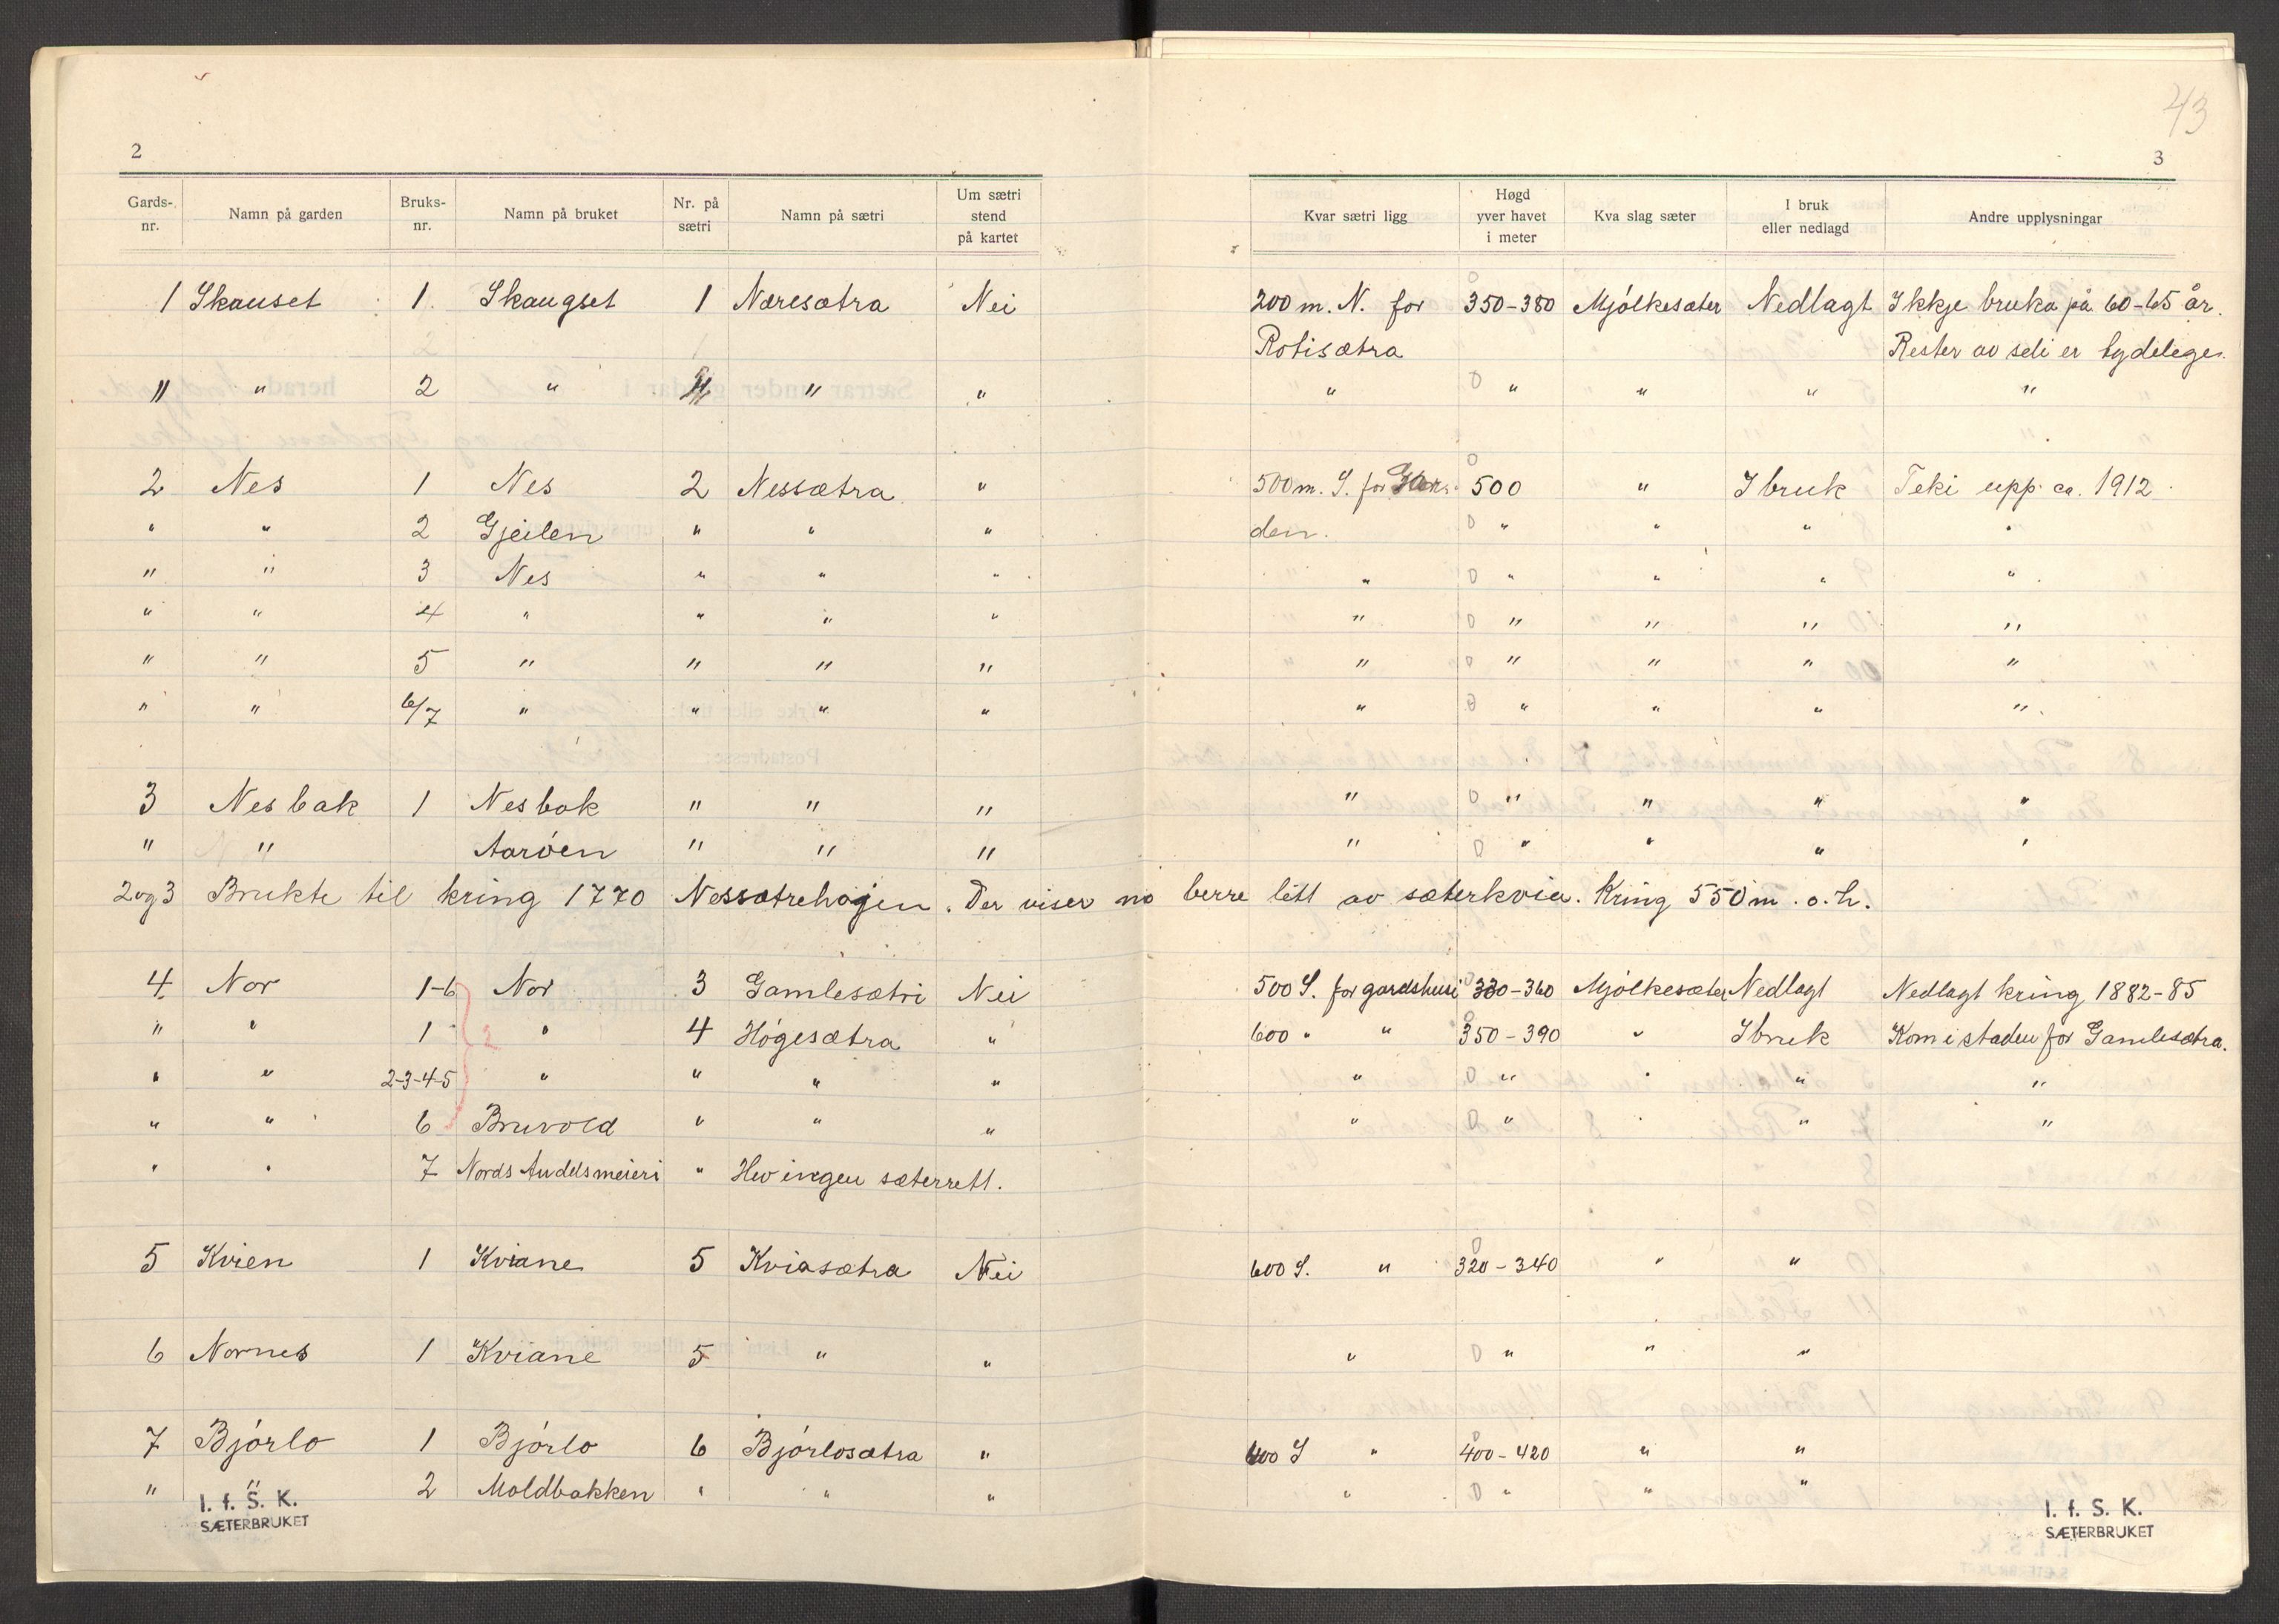 43
2
3
Gards-nr. | Namn på garden | Bruks-nr. | Namn på bruket | Nr. på sætri | Namn på sætri | Um sætri stend på kartet | Kvar sætri ligg | Høgd yver havet i meter | Kva slag sæter | I bruk eller nedlagd | Andre upplysningar
1 Skauset 1. Skaugset 1 Næresætra Nei 200 m. N. for 350-380 Mjölkesæter Nedlagt Ikkje bruka på 60-65 år.
Rotisætra Rester av seli er tydelege.
" " 2 " " " " " " " " "
2 Nes 1 Nes 2 Nessætra " 500 m. S. for 500 " I bruk Teki upp ca. 1912
" " 2 Gjeilen " " " den. " " " "
" " 3 Nes " " " " " " " "
" " 4 " " " " " " " " "
" " 5 " " " " " " " " "
" " 6/7 " " " " " " " " "
3 Nesbak 1 Nesbak " " " " " " " "
" " Aaröen " " " " " " " "
2 og 3 Brukte til kring 1770 Nessætrehagen. Der viser no berre litt av sæterkvien. Kring 550 m. o. h.
4 Nor 1-6 Nor 3 Gamlesætri Nei 500 S. for gardshusi 330-360 Mjölkesæter Nedlagt Nedlagt kring 1882-85
" " 1 " 4 Högesætra " 600 " " 350-390 " I bruk Kom i staden for Gamlesætra.
2
" " 2-3-4-5 " " " " " " " " "
" " 6 Bruvold " " " " " " " "
" " 7 Nords Andelsmeieri " Hev ingen sæterrett.
5 Kvien 1 Kviane 5 Kviasætra Nei 600 S. " 320-340 " "
6 Nornes 1 Kviane 5 " " " " " "
7 Bjórlo 1 Bjórlo 6 Bjórlosætra " 400 S " 400-420 " "
" " 2 Moldbakken " " " " " " "
I. f. S. K.
SÆTERBRUKET
I. f. S. K.
SÆTERBRUKET